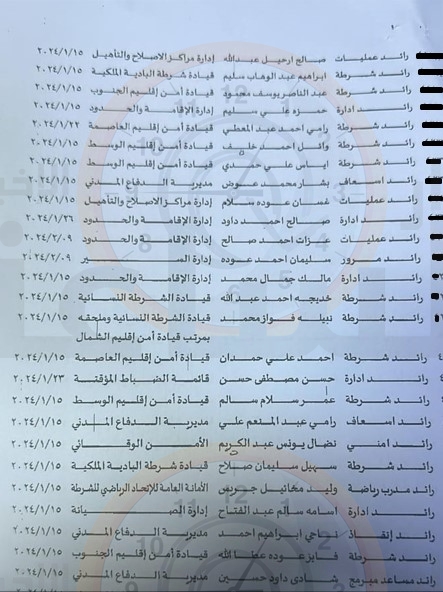 رائد عمليات صالح ارحيل عبدالله إدارة مراكز الاصلاح والتأهيل ٢٠٢٤/١/١٥
رائد شرطة ابراهيم عبد الوهاب سليم قيادة شرطة البادية الملكية ٢٠٢٤/١/١٥
رائد شرطة عبد الناصر يوسف محمود قيادة أمن إقليم الجنوب ٢٠٢٤/١/١٥
رائد ادارة حمزه علي سليم إدارة الإقامة والحدود ٢٠٢٤/١/١٥
رائد شرطة رامي احمد عبد المعطي قيادة أمن إقليم العاصمة ٢٠٢٤/١/٢٢
رائد شرطة وائل احمد خلف قيادة أمن إقليم الوسط ٢٠٢٤/١/١٥
رائد شرطة اياس علي حمدي قيادة أمن إقليم الوسط ٢٠٢٤/١/١٥
رائد اسعاف بشار محمد عوض مديرية الدفاع المدني ٢٠٢٤/١/١٥
رائد عمليات غسان عوده سلام إدارة مراكز الاصلاح والتأهيل ٢٠٢٤/١/١٥
رائد ادارة صالح احمد داود إدارة الإقامة والحدود ٢٠٢٤/١/٢٦
رائد عمليات عزات احمد صالح إدارة الإقامة والحدود ٢٠٢٤/٢/٠٩
رائد مرور سليمان احمد عوده إدارة السير ٢٠٢٤/٢/٠٩
رائد ادارة مالك جمال محمد إدارة الإقامة والحدود ٢٠٢٤/١/١٥
رائد شرطة خديجه احمد عبد الله قيادة الشرطة النسائية ٢٠٢٤/١/١٥
رائد شرطة نبيله فواز محمد قيادة الشرطة النسائية وملحقه ٢٠٢٤/١/١٥
بمرتب قيادة أمن إقليم الشمال
رائد شرطة احمد علي حمدان قيادة أمن إقليم العاصمة ٢٠٢٤/١/١٥
رائد ادارة حسن مصطفى حسن قائمة الضباط المؤقتة ٢٠٢٤/١/٢٣
رائد شرطة عمر سلام سالم قيادة أمن إقليم الوسط ٢٠٢٤/١/١٥
رائد اسعاف رامي عبد المنعم علي مديرية الدفاع المدني ٢٠٢٤/١/١٥
رائد امني نضال يونس عبد الكريم الأمن الوقائي ٢٠٢٤/١/١٥
رائد شرطة سهيل سليمان صلاح قيادة شرطة البادية الملكية ٢٠٢٤/١/١٥
رائد مدرب رياضة وليد مخائيل جريس الأمانة العامة للإتحاد الرياضي للشرطة ٢٠٢٤/١/١٥
رائد ادارة اسامه سالم عبد الفتاح إدارة الصيانة ٢٠٢٤/١/١٥
رائد إنقاذ ناجي ابراهيم احمد مديرية الدفاع المدني ٢٠٢٤/١/١٥
رائد شرطة فايز عوده عطا الله قيادة أمن إقليم الجنوب ٢٠٢٤/١/١٥
رائد مساعد مبرمج شادي داود حسين مديرية الدفاع المدني ٢٠٢٤/١/١٥